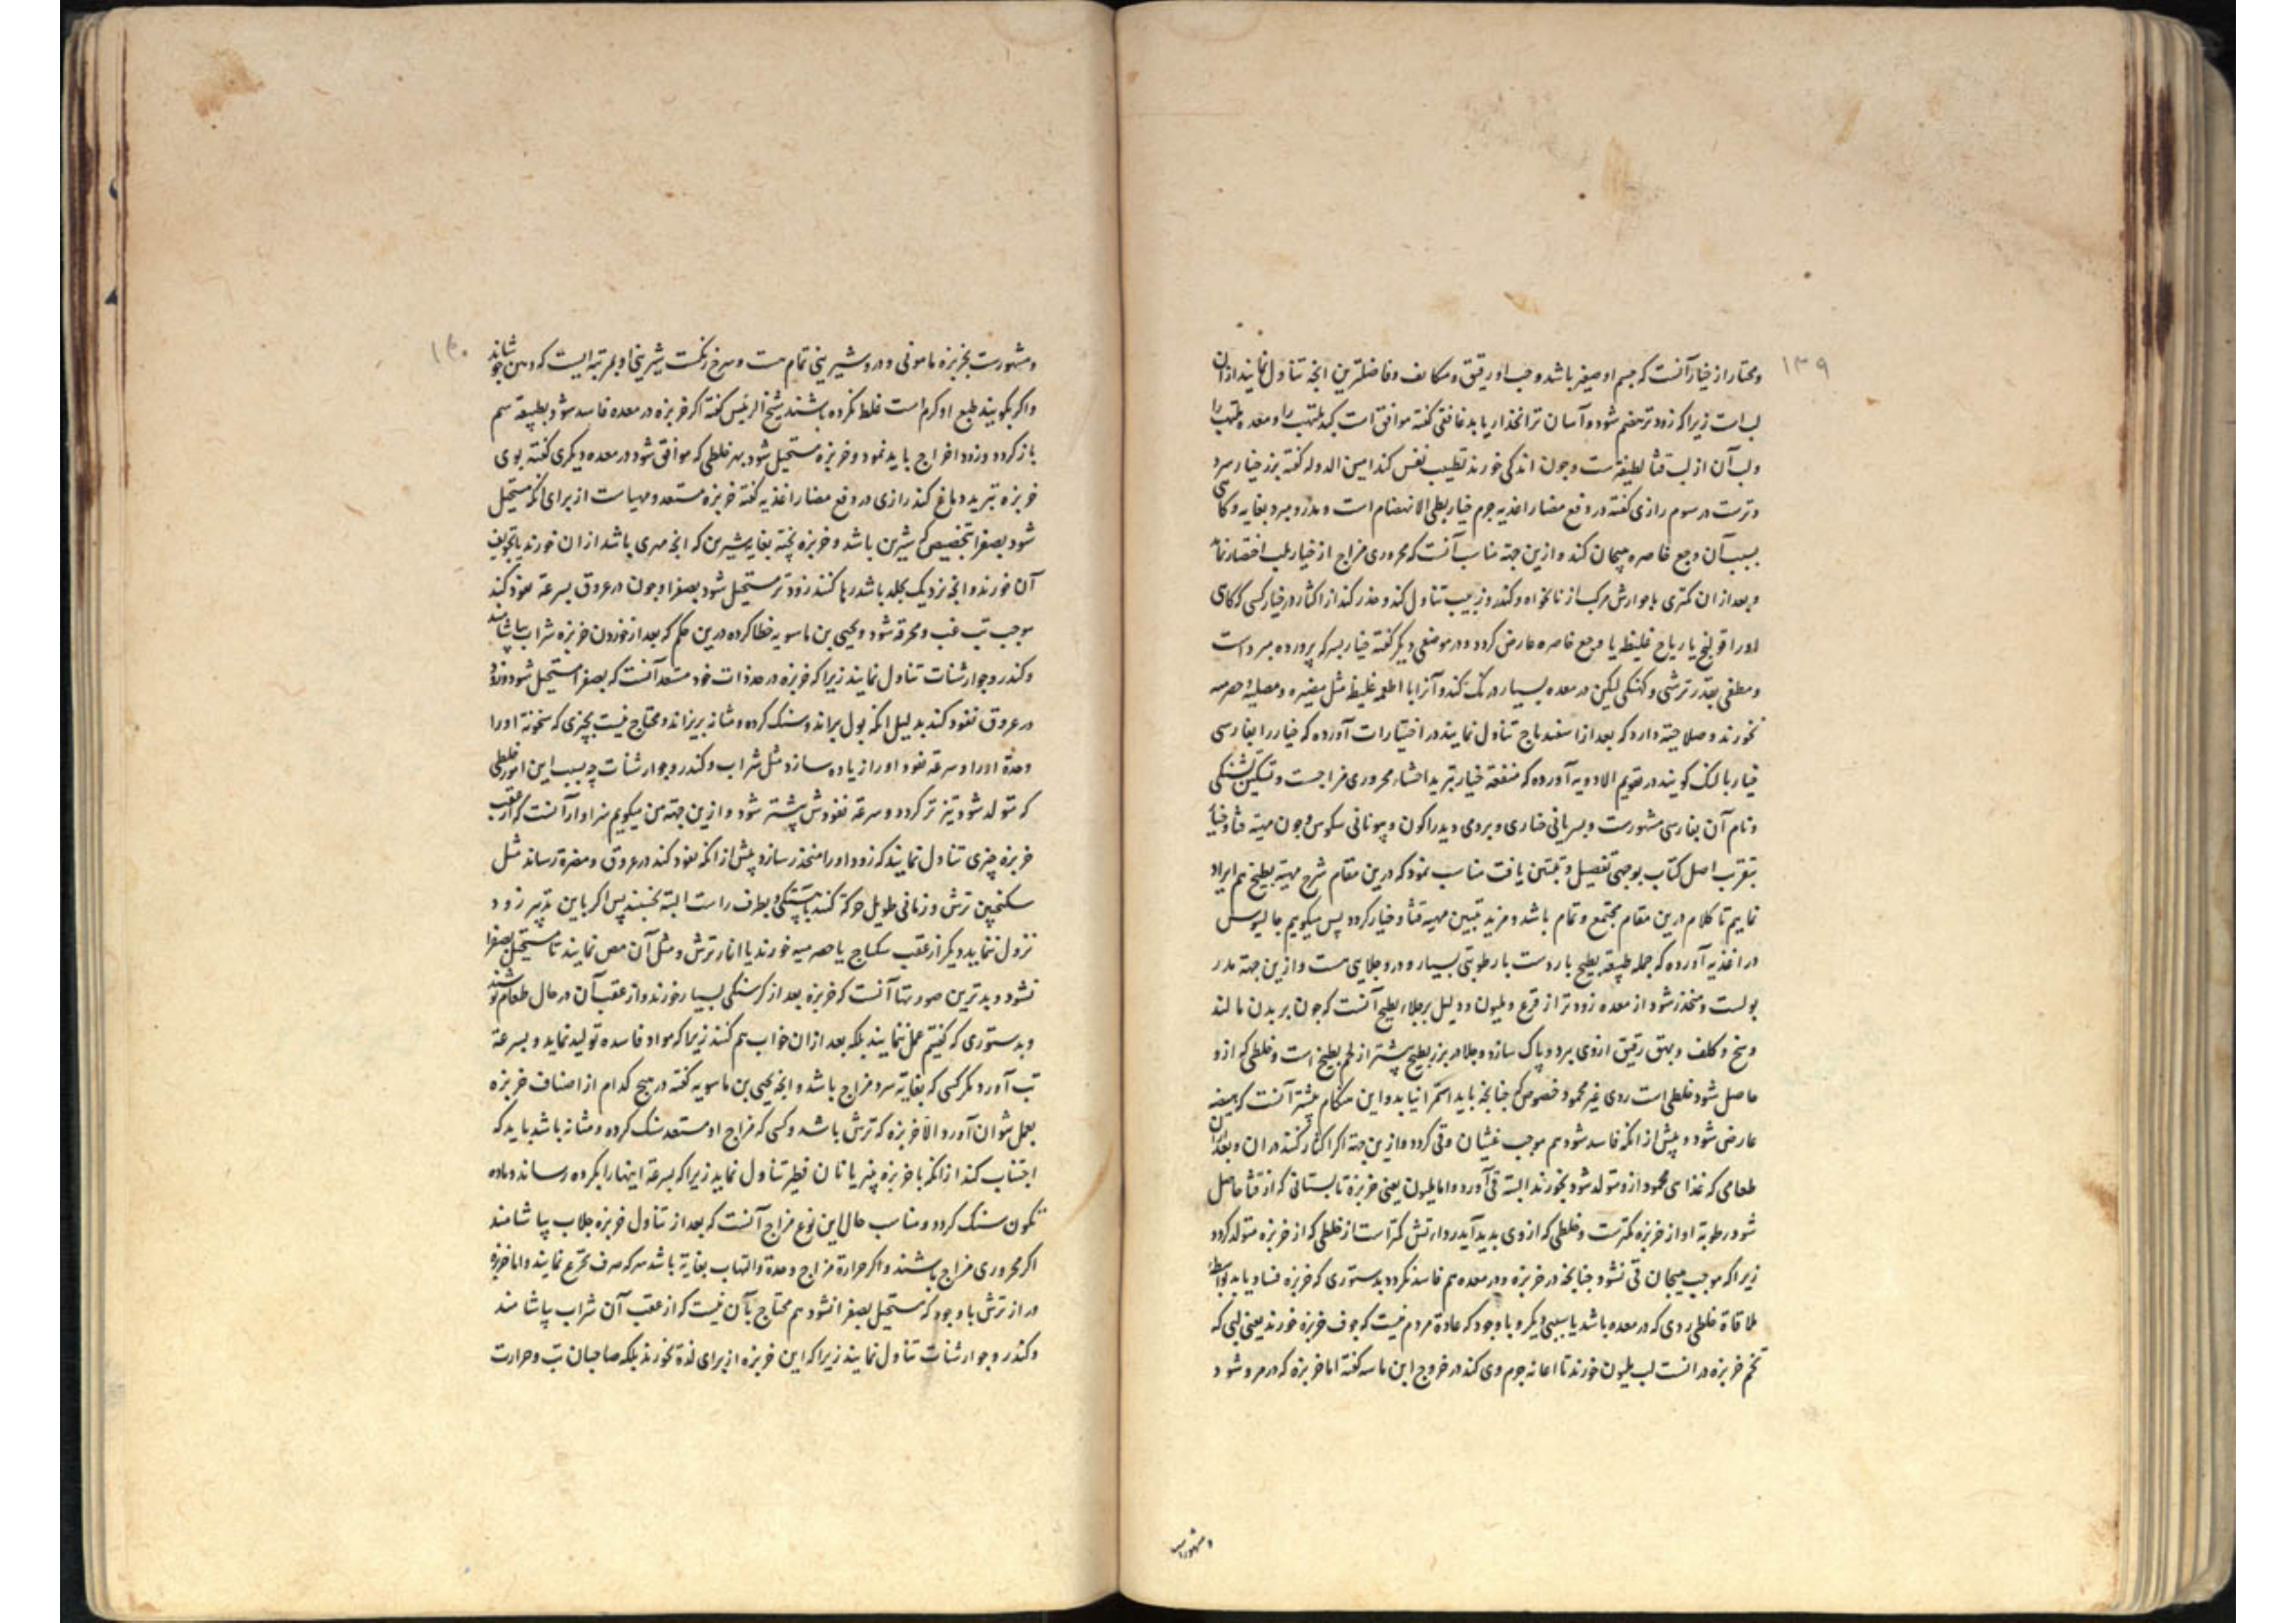 ۱۳۹
ومختار از خیار آنست که جسم او صغیر باشد وحب او رقیق و متکاثف وفاضلترین انچه تناول نمایند ازان
لب است زیرا که زودتر هضم شود و آسان تر انحدار یابد غافقی گفته موافق است کبد ملتهب را و معده ملتهب را
ولب آن از لب قثا لطیفتر است وچون اندکی خورند تطییب نفس کند امین الدوله گفته بزر خیار سرد
وترست در سوم رازی گفته در دفع مضار اغذیه جرم خیار بطی الانهضام است و مدر و مبرد بغایه وکاهی
بسبب آن وجع خاصره هیجان کند وازین جهة مناسب آنست که محروری مزاج از خیار بلب اختصار نماید
وبعد ازان کمتری با جوارش مرکب از نانخواه وکندر وزبیب تناول کند وحذر کند از اکثار در خیار کسی که کاهی
اورا قولنج یا ریاح غلیظه یا وجع خاصره عارض کردد ودر موضعی دیگر گفته خیار بسرکه پرورده مبرد است
ومطفی بقدر ترشی وکهنگی لیکن در معده بسیار درنگ کند وآنرا با اطعمه غلیظ مثل مضیره ومصلیه وحصرمیه
نخورند وصلاحیته دارد که بعد از اسفیدباج تناول نمایند در اختیارات آورده که خیار را بفارسی
خیار بالنک گویند در تقویم الادویه آورده که منفعة خیار تبرید احشاء محروری مزاجست وتسکین تشنگی
ونام آن بفارسی مشهورست وبسریانی خیاری وبرومی ویدراکون وبیونانی سکوس وچون مهیة قثا وخیار
بتقریب اصل کتاب بوجهی تفصیل وتبیین یافت مناسب نمود که درین مقام شرح مهیة بطیخ هم ایراد
نماییم تا کلام درین مقام مجتمع وتمام باشد ومزید تبیین مهیة قثا وخیار کردد پس میگویم جالینوس
در اغذیه آورده که جمله طبیعة بطیخ باردست با رطوبتی بسیار ودرو جلایی هست وازین جهة مدر
بولست ومنحدر شود از معده زودتر از قرع وملیون ودلیل بر جلاء بطیخ آنست که چون بر بدن مالند
وسخ وکلف وبهق رقیق ازوی ببرد وپاک سازد وجلا در بزر بطیخ بیشتر از لحم بطیخ است وخلطی که ازو
حاصل شود خلطی است ردی غیر محمود خصوص چنانچه باید استمرا نیابد واین هنگام بیشتر آنست که هیضه
عارض شود وپیش از انکه فاسد شود هم موجب غثیان وقی کردد وازین جهة اگر اکثار کنند دران وبعد ازان
طعامی که غذای محمود ازو متولد شود نخورند البته قی آورد واما ملیون یعنی خربزه تابستانی که از قثا حاصل
شود رطوبة او از خربزه کمترست وخلطی که ازوی پدید آید رداوتش کمتر است از خلطی که از خربزه متولد کردد
زیرا که موجب هیجان قی نشود چنانچه در خربزه ودر معده هم فاسد نکردد بدستوری که خربزه فساد یابد بواسطه
ملاقاة خلطی ردی که در معده باشد یا سببی دیگر وبا وجود که عادة مردم نیست که جوف خربزه خورند یعنی لبی که
تخم خربزه در انست لب ملیون خورند تا اعانه جرم وی کند در خروج ابن ماسه گفته اما خربزه که در مرو شود
ومشهورست
۱۴۰
ومشهورست بخربزه مامونی ودرو شیرینی تمام هست وسرخ رنگست شیرینی او بمرتبه ایست که دهن بجوشاند
واگر گویند طبع او گرم است غلط نکرده باشند شیخ الرئیس گفته اگر خربزه در معده فاسد شود بطبیعة سم
باز کردد وزود اخراج باید نمود وخربزه مستحیل شود بهر خلطی که موافق شود در معده دیگری گفته بوی
خربزه تبرید دماغ کند رازی در دفع مضار اغذیه گفته خربزه مستعد ومهیاست از برای انکه مستحیل
شود بصفرا بتخصیص که شیرین باشد وخربزه پخته بغایه شیرین که انچه مهری باشد ازان خورند یا تجویف
آن خورند وانچه نزدیک بجلد باشد رها کنند زودتر مستحیل شود بصفرا وچون در عروق بسرعة نفوذ کند
موجب تب غب ومحرقه شود ویحیی بن ماسویه خطا کرده درین حکم که بعد از خوردن خربزه شراب بیاشامند
وکندر وجوارشنات تناول نمایند زیرا که خربزه در حد ذات خود مستعد آنست که بصفرا مستحیل شود وزود
در عروق نفوذ کند بدلیل انکه بول براند وسنگ کرده ومثانه بریزاند ومحتاج نیست بچیزی که سخونة اورا
وحدة اورا وسرعة نفوذ اورا زیاده سازد مثل شراب وکندر وجوارشنات چه بسبب این امور خلطی
که متولد شود تیزتر کردد وسرعة نفوذش بیشتر شود وازین جهة من میگویم سزاوار آنست که از عقب
خربزه چیزی تناول نمایند که زود اورا منحدر سازد پیش از انکه نفوذ کند در عروق ومضرة رساند مثل
سکنجبین ترش وزمانی طویل حرکة کنند باهستگی وبطرف راست البته نخسبند پس اگر باین تدبیر زود
نزول ننماید دیگر از عقب سکباج یا حصرمیه خورند یا انار ترش ومثل آن مص نمایند تا مستحیل بصفرا
نشود وبدترین صورتها آنست که خربزه بعد از گرسنگی بسیار خورند واز عقب آن در حال طعام نوشند
وبدستوری که گفتیم عمل ننمایند بلکه بعد ازان خواب هم کنند زیرا که مواد فاسده تولید نماید وبسرعة
تب آورد مگر کسی که بغایة سرد مزاج باشد وانچه یحیی بن ماسویه گفته در هیچ کدام از اصناف خربزه
بعمل نتوان آورد الا خربزه که ترش باشد وکسی که مزاج او مستعد سنگ کرده ومثانه باشد باید که
اجتناب کند از انکه با خربزه پنیر یا نان فطیر تناول نماید زیرا که بسرعة اینها را بکرده رساند وماده
تکون سنگ کردد ومناسب حال این نوع مزاج آنست که بعد از تناول خربزه جلاب بیاشامند
اگر محروری مزاج باشند واگر حرارة مزاج وحدة والتهاب بغایة باشد سرکه صرف تجرع نمایند واما خربزه
دراز ترش با وجود که مستحیل بصفرا نشود هم محتاج بآن نیست که از عقب آن شراب بیاشامند
وکندر وجوارشنات تناول نمایند زیرا که این خربزه از برای لذة نخورند بلکه صاحبان تب وحرارت